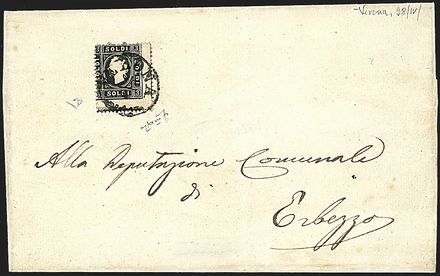 Verona, 28/IV/
SOLDI
SOLDI
Alla Deputazione Comunale
di
Erbezzo